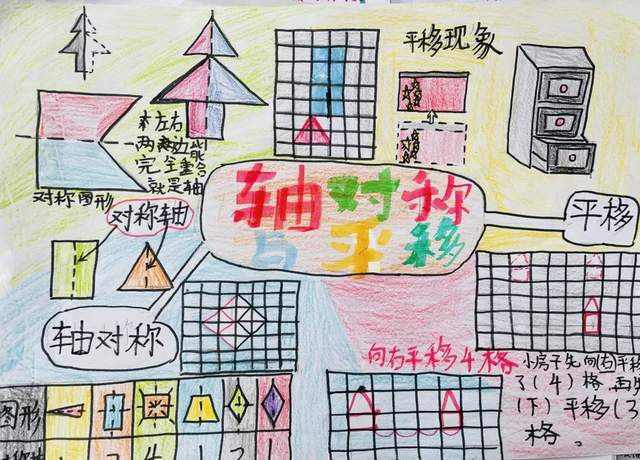 平移现象
本左右
两边能
完全重合
就是轴
对称图形
对称轴
轴对称
与平移
平移
轴对称
向右平移4格
小房子先向(右)平移
了(4)格,再
(下)平移(3
格。
图形